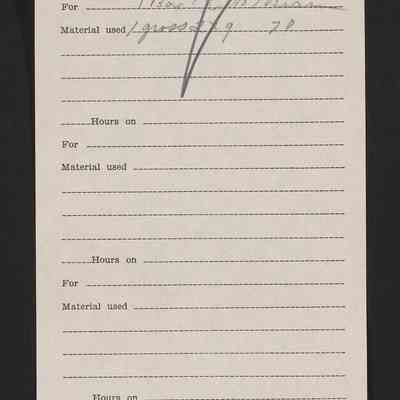 For
Material used 1 gross
Hours on
For
Material used
Hours on
For
Material used
Hours on